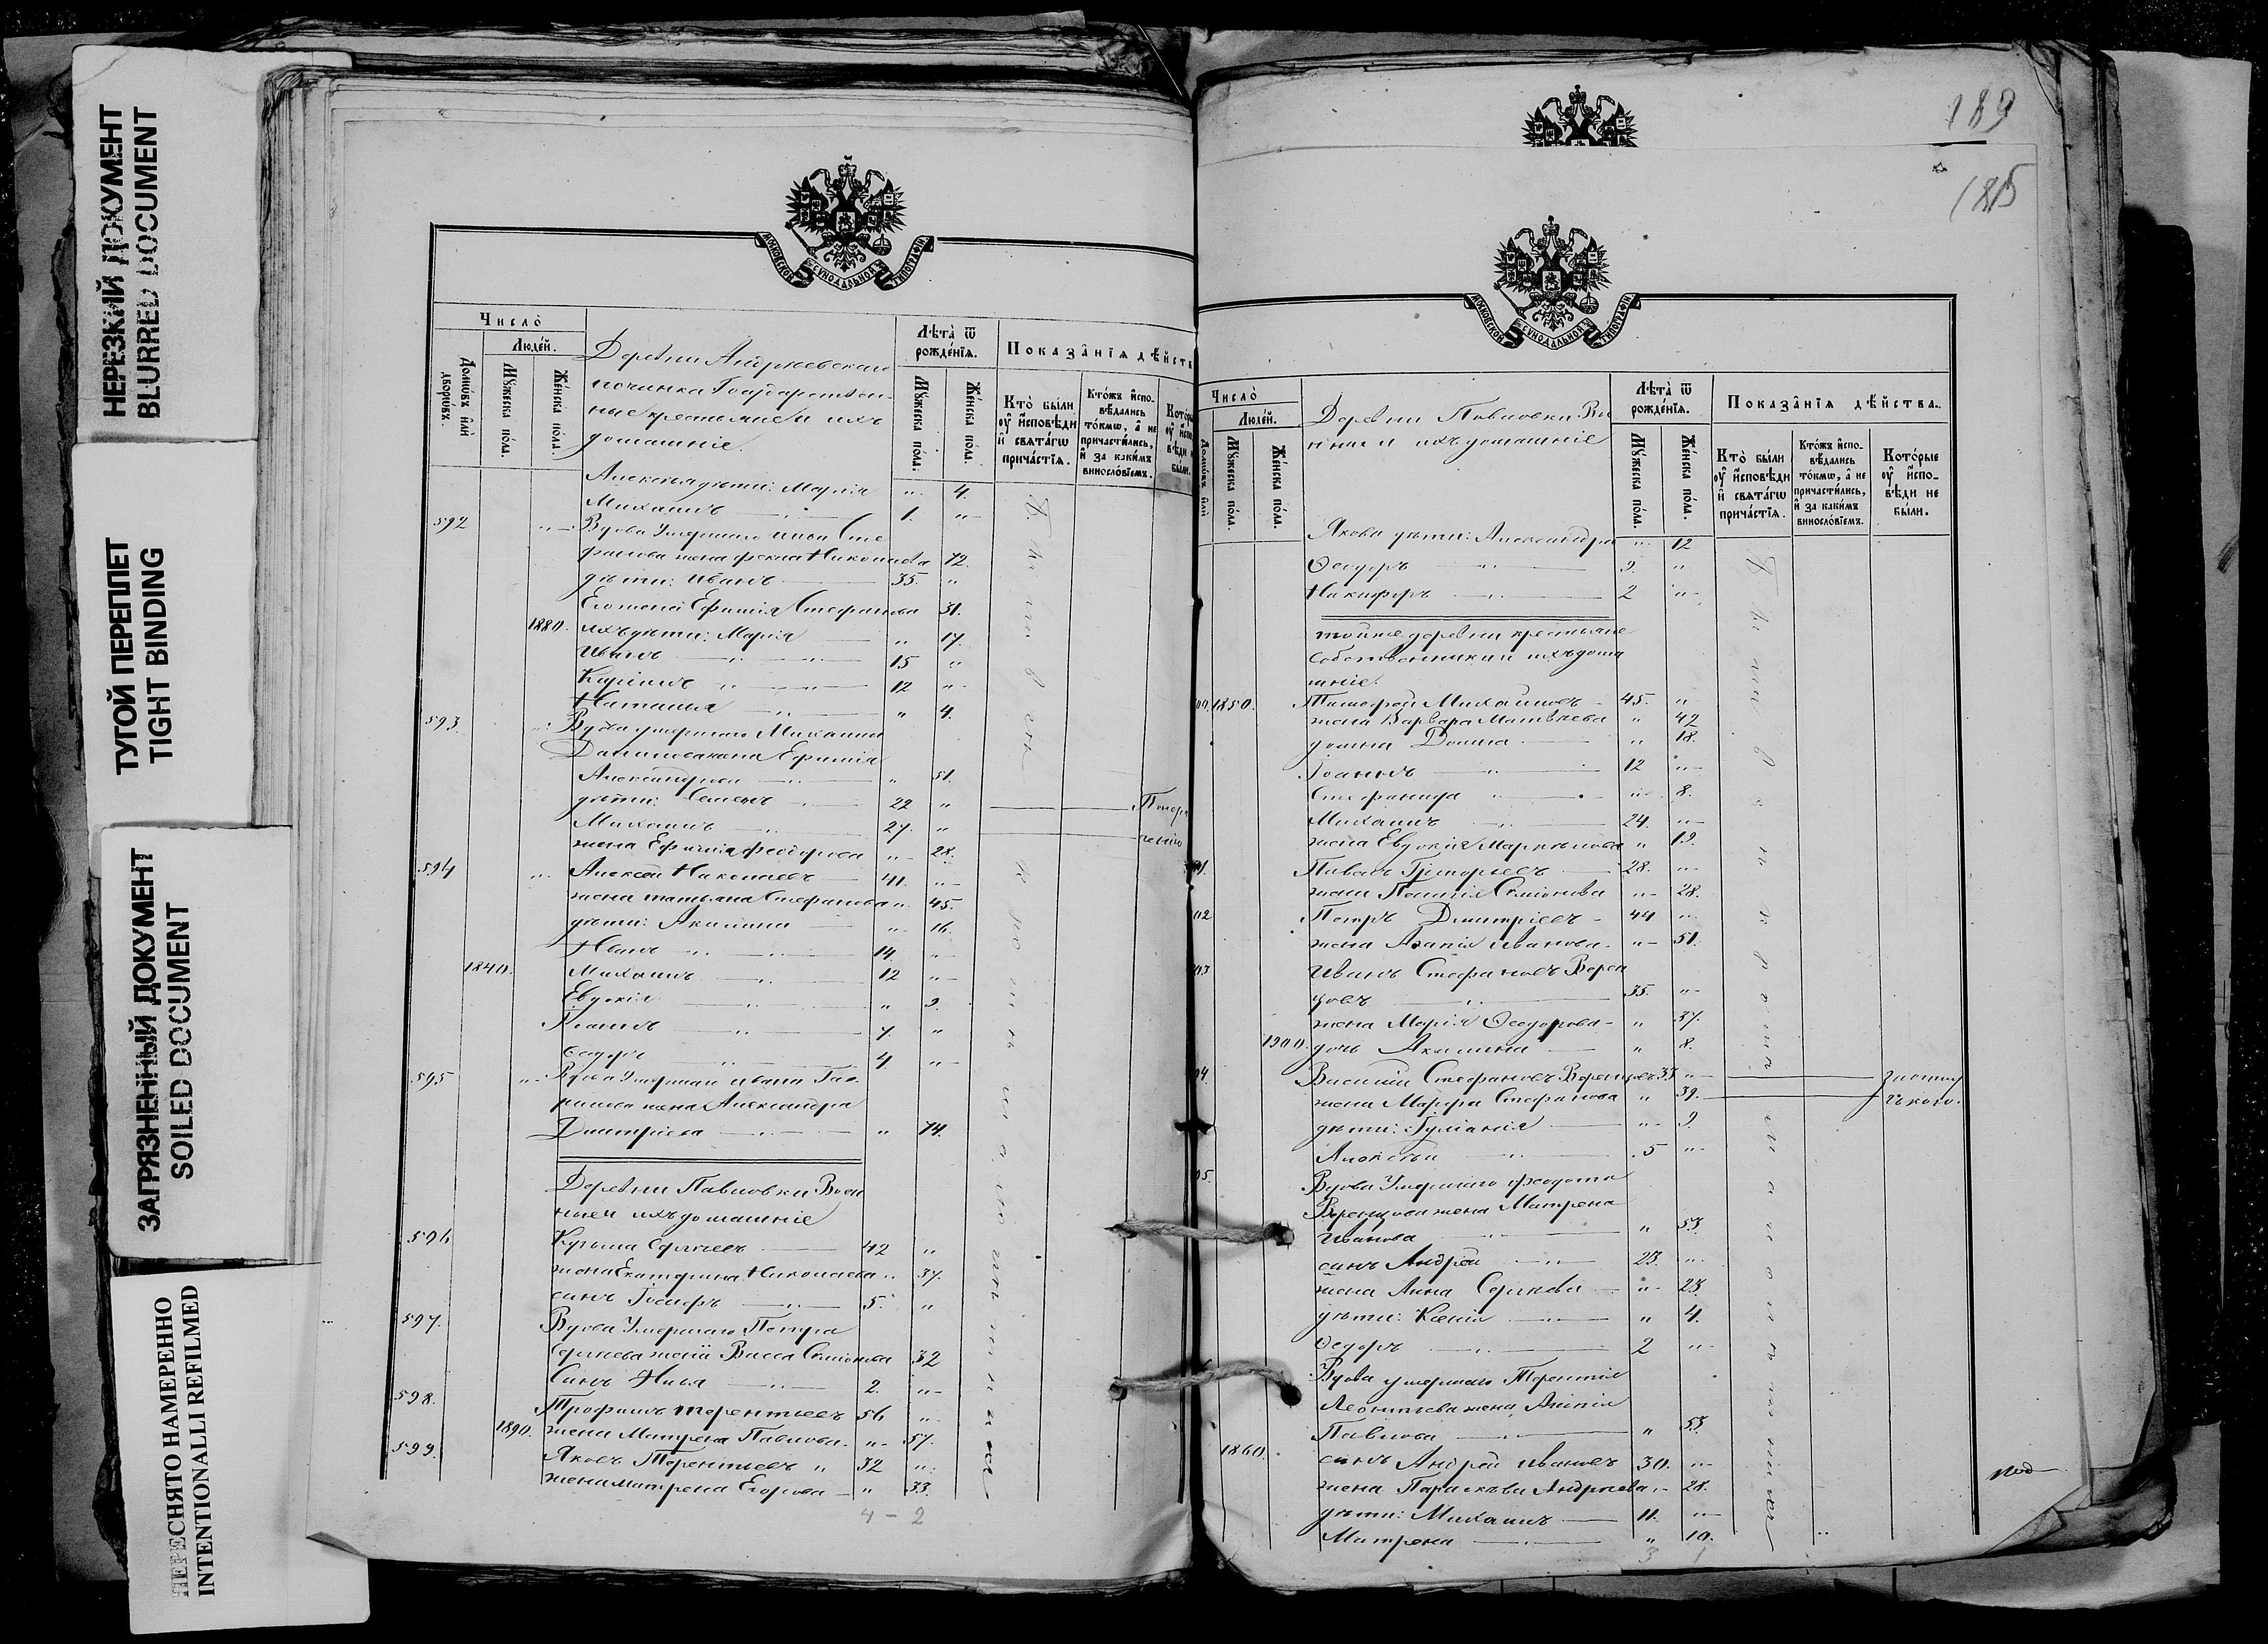 НЕРЕЗКИЙ ДОКУМЕНТ
BLURRED DOCUMENT
ТУГОЙ ПЕРЕПЛЕТ
TIGHT BINDING
ЗАГРЯЗНЕННЫЙ ДОКУМЕНТ
SOILED DOCUMENT
ПЕРЕСНЯТО НАМЕРЕННО
INTENTIONALLI REFILMED
МОСКОВСКОЙ СѴНОДАЛЬНОЙ ТИПОГРАФІИ
Число̀
Людей.
Домовъ или дворовъ.
Мꙋжеска пола.
Женска пола.
Деревни Андреевскаго
починка Государствен-
ные крестьяне и ихъ
домашніе.
Лѣта ѿ рожденїѧ.
Мꙋжеска пола.
Женска пола.
Показанїѧ дѣйст
Кто были оу исповѣди и свѧтагѡ причастїѧ.
Ктожъ исповѣдались токмѡ, а не причастились, и за какимъ винословїемъ.
Алексѣя дѣти: Марія " 4.
Михаилъ 1. "
592 Вдова Умершаго Ивана Сте
фанова жена Фекла Николаева 72.
дѣти: Иванъ 35. "
Его жена Ефимія Стефанова 31.
1880. ихъ дѣти: Марія " 17.
Иванъ 15 "
12 "
Наталия " 4.
593. Вдова умершаго Михаила
Данилова жена Ефимія
Александрова " 51.
дѣти: Семенъ 22 "
Михаилъ 27. "
жена Ефимія Феодорова " 28.
594 Алексей Николаевъ 41. "
жена Татьяна Стефанова " 45.
дѣти: Акилина " 16.
Иванъ 14. "
1840. Михаилъ 12 "
Евдокія " 9.
7. "
Ѳедоръ 4. "
595 Вдова Умершаго Ивана Гав
рилова жена Александра
Дмитріева " 74.
Деревни Павловки Воен
ные и ихъ домашніе
596 Кузьма Сергѣевъ 42 "
жена Екатерина Николаева " 37.
сынъ Іосифъ 5. "
597. Вдова Умершаго Петра
Сергѣева жена Васса Симонова 32
Сынъ Илья 2. "
598. Трофимъ Терентьевъ 56 "
1890. жена Матрена Павлова " 57.
599. Яковъ Терентьевъ " 32 "
жена Матрена Егорова " 33.
4 - 2
189
185
МОСКОВСКОЙ СѴНОДАЛЬНОЙ ТИПОГРАФІИ
Число̀
Людей.
Домовъ или
Мꙋжеска пола.
Женска пола.
Деревни Павловки Во
нные и ихъ домашніе
Лѣта ѿ рожденїѧ.
Мꙋжеска пола.
Женска пола.
Показанїѧ дѣйства.
Кто были оу исповѣди и свѧтагѡ причастїѧ.
Ктожъ исповѣдались токмѡ, а не причастились, и за какимъ винословїемъ.
Которые оу исповѣди не были.
Якова дѣти: Александра " 12
Ѳедоръ 9. "
Никифоръ 2 "
тойже деревни крестьяне
собственники и ихъ дома
шніе.
1850. Тимофей Михайловъ 45. "
жена Варвара Матвѣева " 42
Домна " 18.
Іоаннъ 12 "
Стефанида " 8.
Михаилъ 24. "
жена Евдокія " 19.
Павелъ Григорьевъ 28. "
жена Симонова " 28.
02 Петръ Дмитріевъ 44 "
жена Агапія Иванова " 51.
03 Иванъ Стефановъ Ворон
цовъ 35. "
жена Марія Ѳеодорова " 37.
1900. дочь Акилина " 8.
04. Василій Стефановъ 33 "
жена Марфа Стефанова " 39.
дѣти: " 9.
Алексѣй 5 "
05. Вдова Умершаго Феодота
жена Матрена
Иванова " 53.
сынъ Андрей 23. "
жена Анна Сергѣева " 23
дѣти: Ксенія " 4.
Ѳедоръ 2 "
Вдова умершаго Терентія
Леонтьева жена
Павлова " 53.
1860. сынъ Андрей Ивановъ 30. "
жена Параскева Андреева " 28.
дѣти: Михаилъ 11. "
Матрена " 10.
3 1